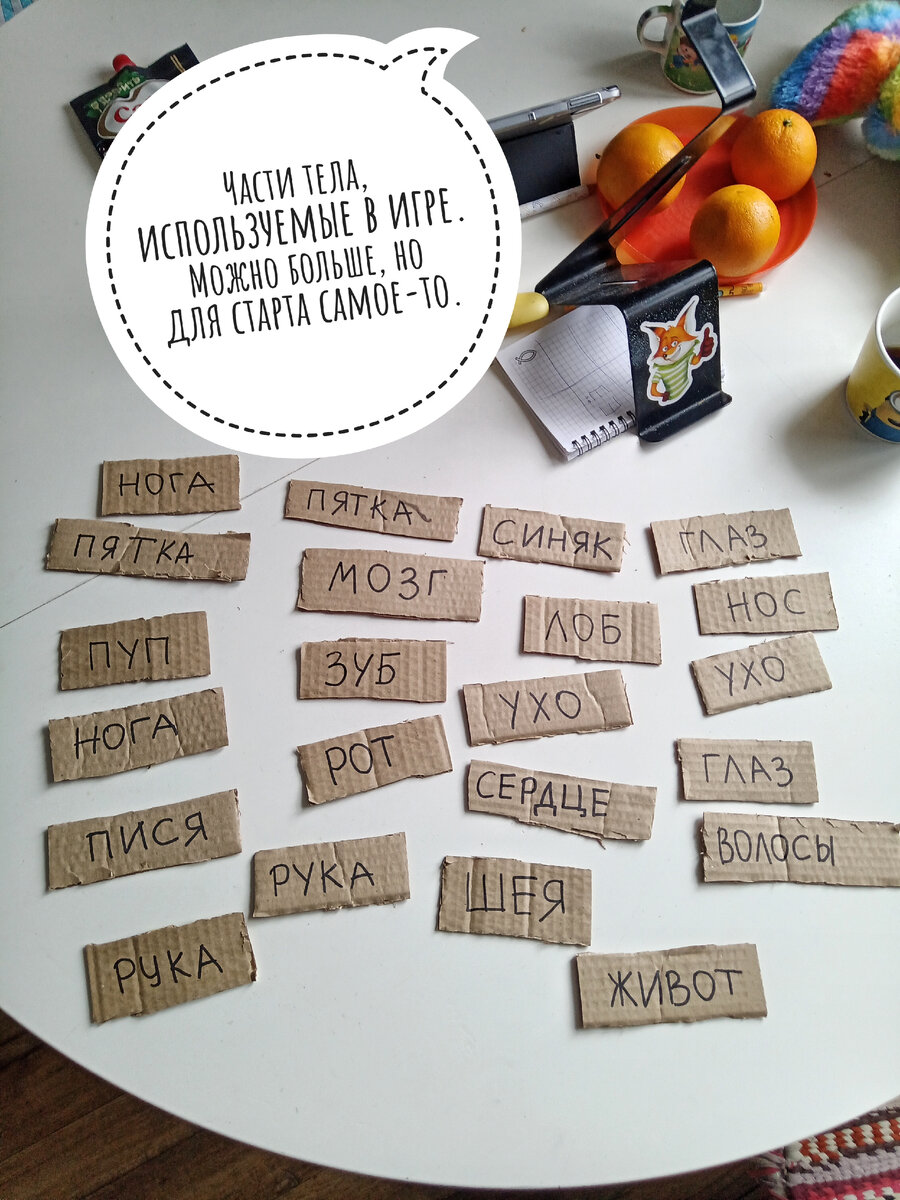 Части тела,
используемые в игре.
Можно больше, но
для старта самое-то.
НОГА
ПЯТКА
СИНЯК
ГЛАЗ
ПЯТКА
МОЗГ
ЛОБ
НОС
ПУП
ЗУБ
УХО
УХО
НОГА
РОТ
СЕРДЦЕ
ГЛАЗ
ПИСЯ
РУКА
ШЕЯ
ВОЛОСЫ
РУКА
ЖИВОТ